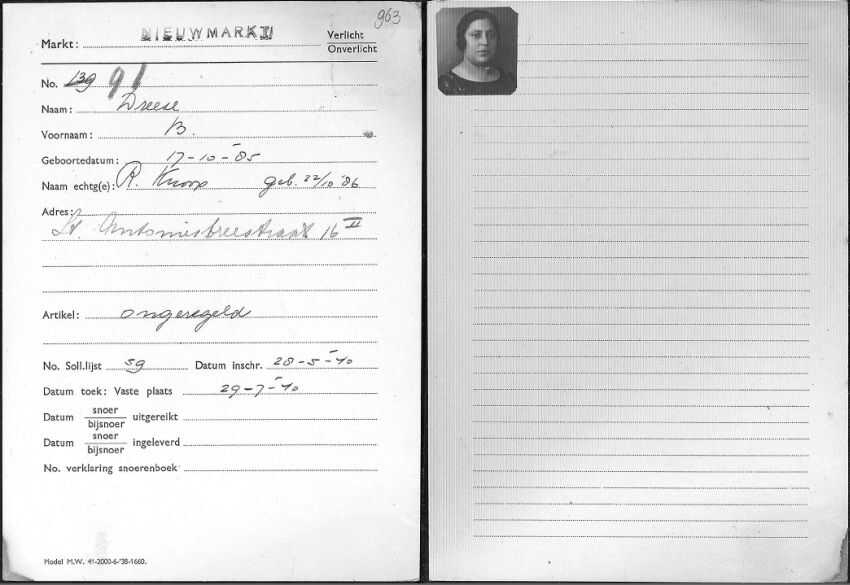 963
Markt: NIEUWMARKT Verlicht
Onverlicht
No. 139 91
Naam: Dreese
Voornaam: B.
Geboortedatum: 17-10-'85
Naam echtg(e): R. Knoop geb. 22/10 '86
Adres:
St. Antoniesbreestraat 16 II
Artikel: ongeregeld
No. Soll.lijst 59 Datum inschr. 28-5-'40
Datum toek: Vaste plaats 29-7-'40
Datum snoer uitgereikt
bijsnoer
Datum snoer ingeleverd
bijsnoer
No. verklaring snoerenboek
Model M.W. 41-2000-6-'38-1660.